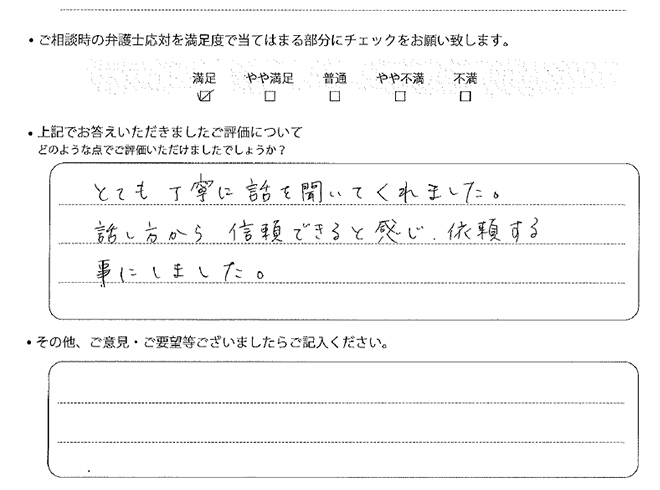 ・ご相談時の弁護士応対を満足度で当てはまる部分にチェックをお願い致します。
満足 やや満足 普通 やや不満 不満
☑ □ □ □ □
・上記でお答えいただきましたご評価について
どのような点でご評価いただけましたでしょうか?
とても丁寧に話を聞いてくれました。
話し方から信頼できると感じ、依頼する
事にしました。
・その他、ご意見・ご要望等ございましたらご記入ください。